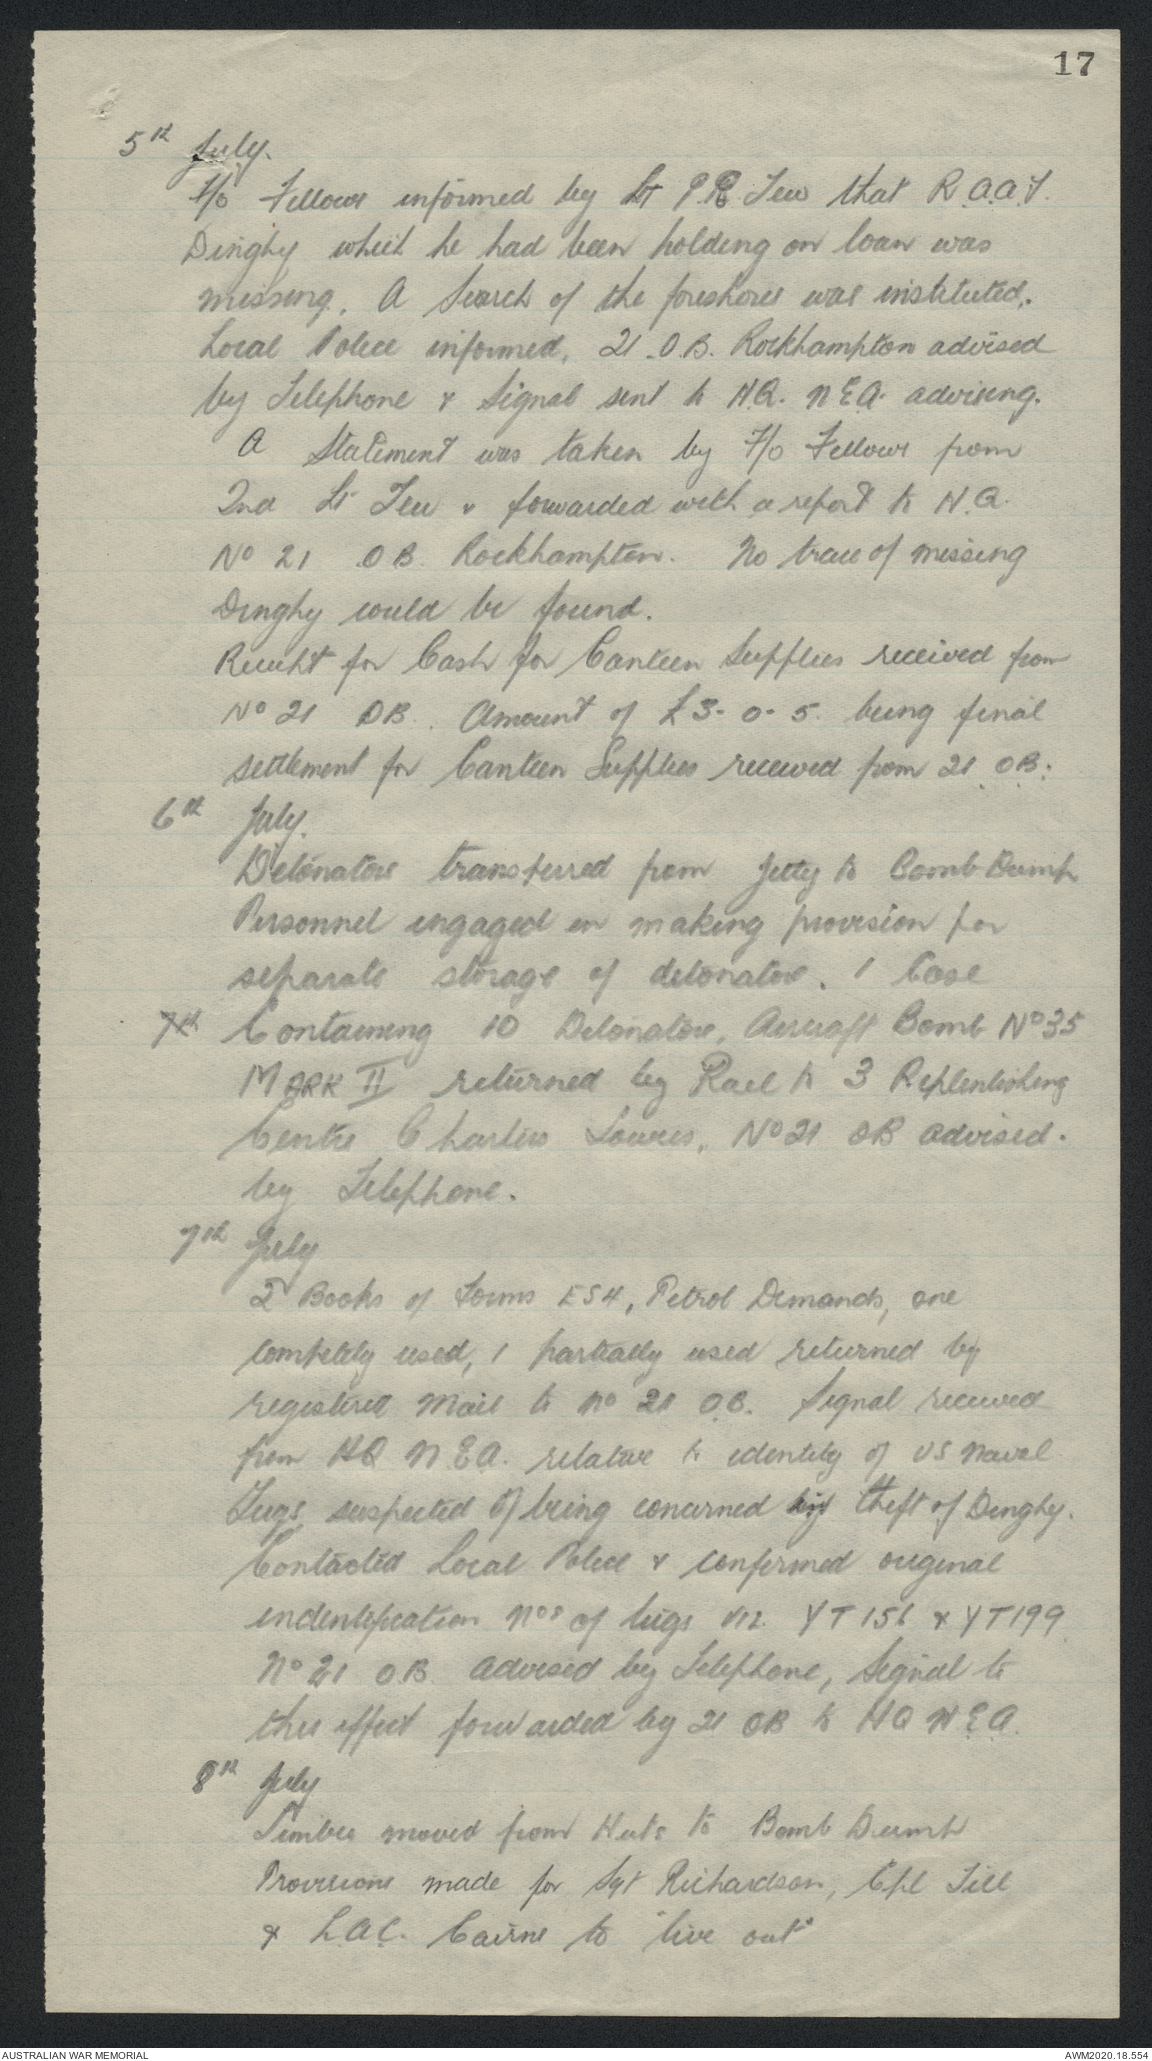 17
5th July.
F/O Fellows informed by Lt P.R. Tew that R.A.A.F.
Dinghy which he had been holding on loan was
missing. A Search of the foreshores was instituted.
Local Police informed, 21 .O.B. Rockhampton advised
by Telephone & Signal sent to H.Q. N.E.A. advising.
A Statement was taken by F/O Fellows from
2nd Lt Tew & forwarded with a report to H.Q.
No 21 O.B. Rockhampton. No trace of missing
Dinghy could be found.
Receipt for Cash for Canteen Supplies received from
No 21 OB. Amount of £3-0-5. being final
settlement for Canteen Supplies received from 21 O.B.
6th July.
Detonators transferred from Jetty to Bomb Dump
Personnel engaged in making provision for
separate storage of detonators. 1 Case
7th Containing 10 Detonators, Aircraft Bomb No 35
MARK II returned by Rail to 3 Replenishing
Centre Charters Towers, No 21 OB advised.
by Telephone.
7th July
2 Books of Forms E54, Petrol Demands, one
completely used, 1 partially used returned by
registered Mail to No 21 O.B. Signal received
from HQ N.E.A. relative to identity of US Naval
Tugs suspected of being concerned in theft of Dinghy.
Contacted Local Police & confirmed original
indentification Nos of tugs viz. YT 156 & YT199
No 21 O.B. advised by Telephone, Signal to
this effect forwarded by 21 OB to HQ N.E.A.
8th July
Timber moved from Huts to Bomb Dump
Provisions made for Sgt Richardson, Cpl Till
& L.A.C. Cairns to "live out"
AUSTRALIAN WAR MEMORIAL
AWM2020.18.554